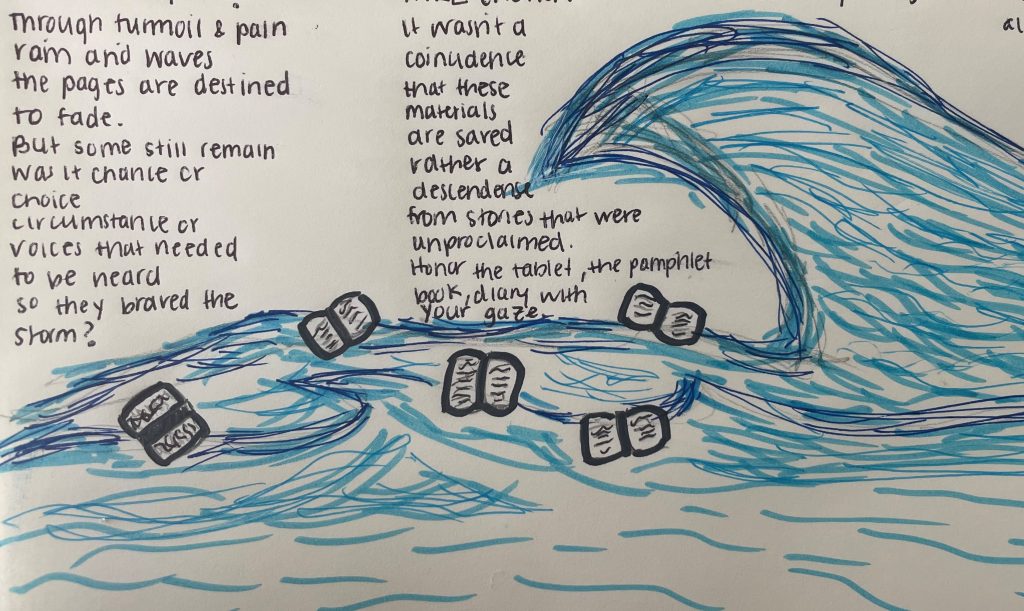 Through turmoil & pain
rain and waves
the pages are destined
to fade.
But some still remain
was it chance or
choice
circumstance or
voices that needed
to be heard
so they braved the
storm?
It wasn't a
coincidence
that these
materials
are saved
rather a
descendense
from stories that were
unproclaimed.
Honor the tablet, the pamphlet
book, diary with
your gaze